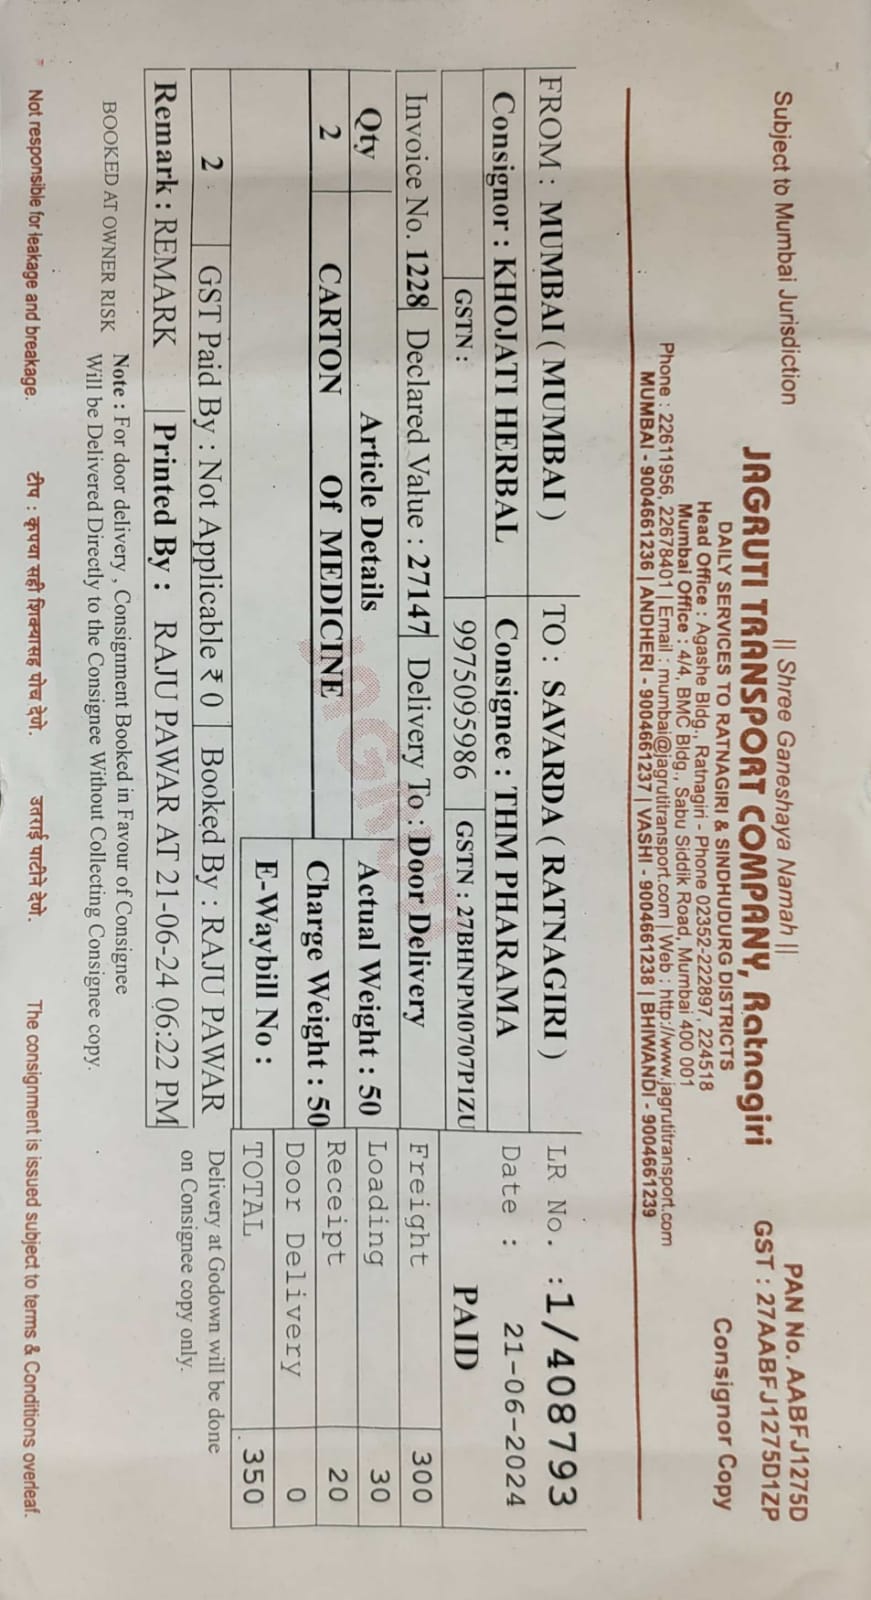 || Shree Ganeshaya Namah ||
Subject to Mumbai Jurisdiction
PAN No. AABFJ1275D
JAGRUTI TRANSPORT COMPANY, Ratnagiri
GST : 27AABFJ1275D1ZP
DAILY SERVICES TO RATNAGIRI & SINDHUDURG DISTRICTS
Consignor Copy
Head Office : Agashe Bldg., Ratnagiri - Phone 02352-222897, 224518
Mumbai Office : 4/4, BMC Bldg., Sabu Siddik Road, Mumbai 400 001
Phone : 22611956, 22678401 | Email : mumbai@jagrutitransport.com | Web : http://www.jagrutitransport.com
MUMBAI - 9004661236 | ANDHERI - 9004661237 | VASHI - 9004661238 | BHIWANDI - 9004661239
FROM : MUMBAI ( MUMBAI ) TO : SAVARDA ( RATNAGIRI ) LR No. : 1/408793
Consignor : KHOJATI HERBAL Consignee : THM PHARAMA Date : 21-06-2024
GSTN : 9975095986 GSTN : 27BHNPM0707P1ZU PAID
Invoice No. 1228 Declared Value : 27147 Delivery To : Door Delivery Freight 300
Qty Article Details Actual Weight : 50 Loading 30
2 CARTON Of MEDICINE Charge Weight : 50 Receipt 20
JAGRUTI
Door Delivery 0
E-Waybill No : TOTAL 350
2 GST Paid By : Not Applicable ₹ 0 Booked By : RAJU PAWAR
Delivery at Godown will be done
on Consignee copy only.
Remark : REMARK Printed By : RAJU PAWAR AT 21-06-24 06:22 PM
BOOKED AT OWNER RISK Note : For door delivery , Consignment Booked in Favour of Consignee
Will be Delivered Directly to the Consignee Without Collecting Consignee copy.
Not responsible for leakage and breakage. टीप : कृपया सही शिक्यासह पोच देणे. उतराई पार्टीने देणे. The consignment is issued subject to terms & Conditions overleaf.